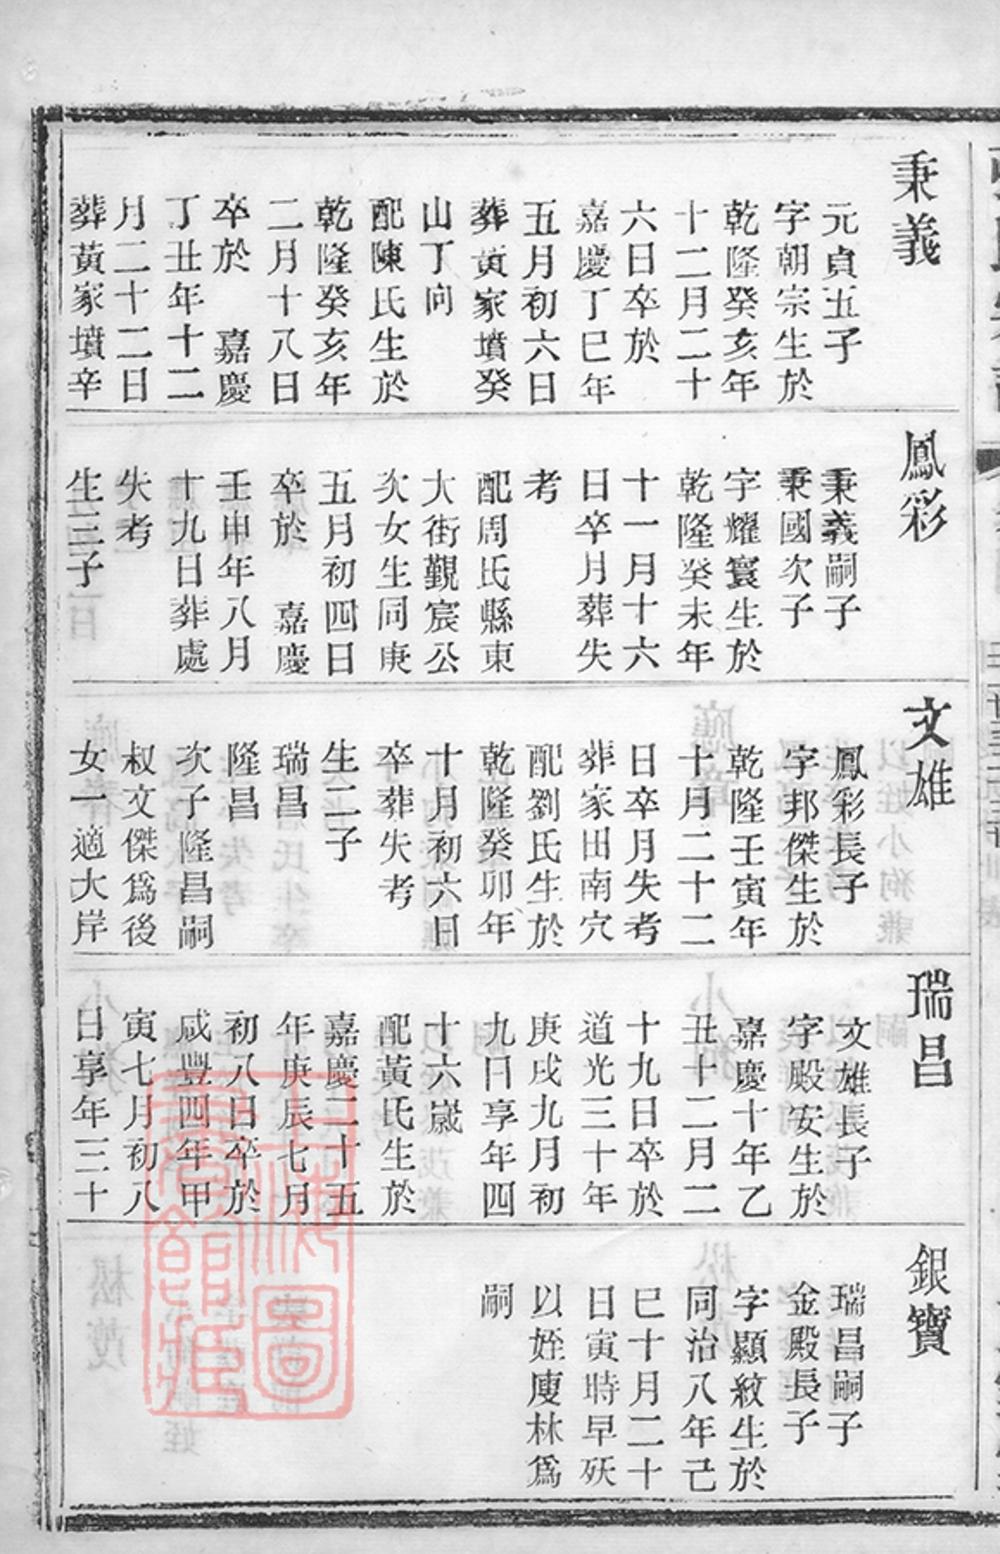 秉義
元貞五子
字朝宗生於
乾隆癸亥年
十二月二十
六日卒於
嘉慶丁巳年
五月初六日
葬黃家墳癸
山丁向
配陳氏生於
乾隆癸亥年
二月十八日
卒於 嘉慶
丁丑年十二
月二十二日
葬黃家墳辛
鳳彩
秉義嗣子
秉國次子
字耀寰生於
乾隆癸未年
十一月十六
日卒月葬失
考
配周氏縣東
大街覲宸公
次女生同庚
五月初四日
卒於 嘉慶
壬申年八月
十九日葬處
失考
生三子
文雄
鳳彩長子
字邦傑生於
乾隆壬寅年
十月二十二
日卒月失考
葬家田南穴
配劉氏生於
乾隆癸卯年
十月初六日
卒葬失考
生二子
瑞昌
隆昌
次子隆昌嗣
叔文傑為後
女一適大岸
瑞昌
文雄長子
字殿安生於
嘉慶十年乙
丑十二月二
十九日卒於
道光三十年
庚戌九月初
九日享年四
十六歲
配黃氏生於
嘉慶二十五
年庚辰七月
初八日卒於
咸豐四年甲
寅七月初八
日享年三十
銀寶
瑞昌嗣子
金殿長子
字顯紋生於
同治八年己
巳十月二十
日寅時早殀
以姪廋林為
嗣
上海圖
書館藏